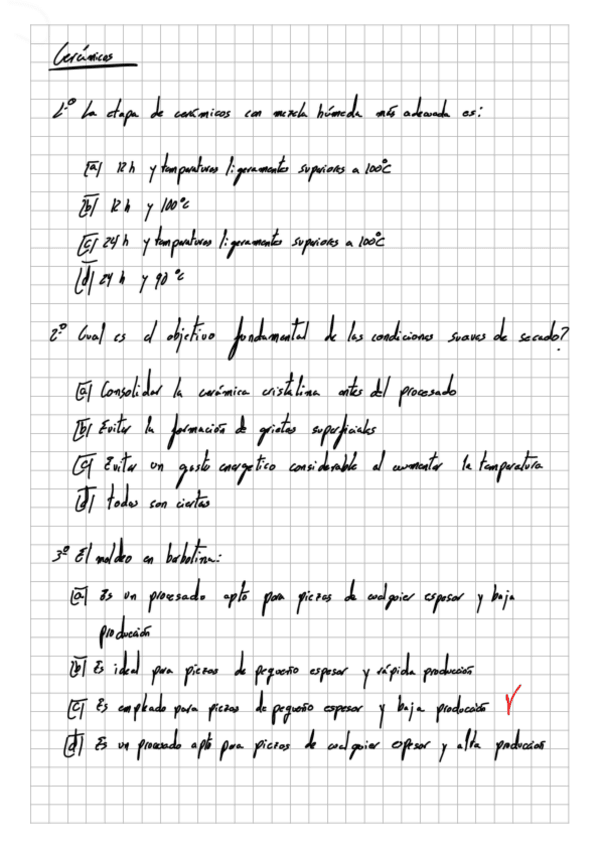 Cerámicos
1.º La etapa de cerámicos con mezcla húmeda más adecuada es:
[a] 12 h y temperaturas ligeramente superiores a 100ºC
[b] 12 h y 100ºC
[c] 24 h y temperaturas ligeramente superiores a 100ºC
[d] 24 h y 90 ºC
2.º Cual es el objetivo fundamental de las condiciones suaves de secado?
[a] Consolidar la cerámica cristalina antes del procesado
[b] Evitar la formación de grietas superficiales
[c] Evitar un gasto energetico considerable al aumentar la temperatura
[d] todas son ciertas
3º El moldeo en barbotina:
[a] Es un procesado apto para piezas de cualquier espesor y baja
producción
[b] Es ideal para piezas de pequeño espesor y rápida producción
[c] Es empleado para piezas de pequeño espesor y baja producción
[d] Es un procesado apto para piezas de cualquier espesor y alta produccion